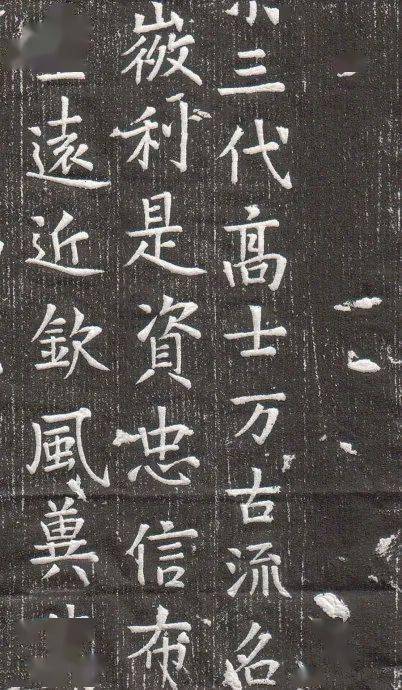 三代髙士万古流名
利是資忠信布
遠近欽風冀